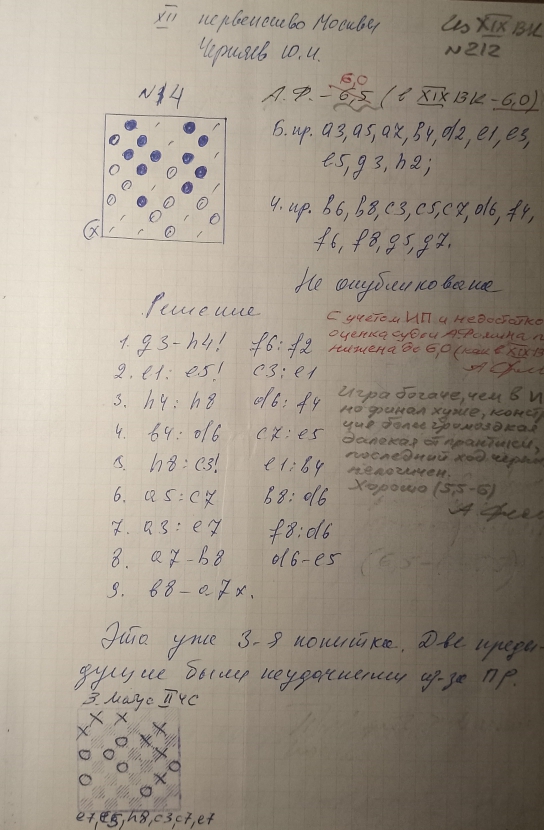 XII первенство Москвы
Черняев Ю.И.
Из XIX ВК
№ 212
№14
6,0
А.Ф. - 6,5 (в XIX ВК - 6,0)
б. пр. а3, а5, а7, в4, d2, e1, e3,
e5, g3, h2;
ч. пр. в6, в8, c3, c5, c7, d6, f4,
f6, f8, g5, g7.
Не опубликована
Решение
С учетом ИП и недостатков
оценка судьи А.Фомина
нижена до 6,0 (как в XIX В
1. g3-h4! f6:f2
2. e1:e5! c3:e1
3. h4:h8 d6:f4
4. в4:d6 c7:e5
5. h8:c3! e1:в4
6. a5:c7 в8:d6
7. a3:e7 f8:d6
8. a7-в8 d6-e5
9. в8-a7x.
Игра богаче, чем в И
но финал хуже, констр
ция более громоздкая
далекая от практики,
последний ход черных
нелогичен.
Хорошо (5,5-6)
Это уже 3-я попытка. Две преды-
дущие были неудачными из-за ПР.
3. Матус II ЧС
e7, c5, h8, c3, c7, e7